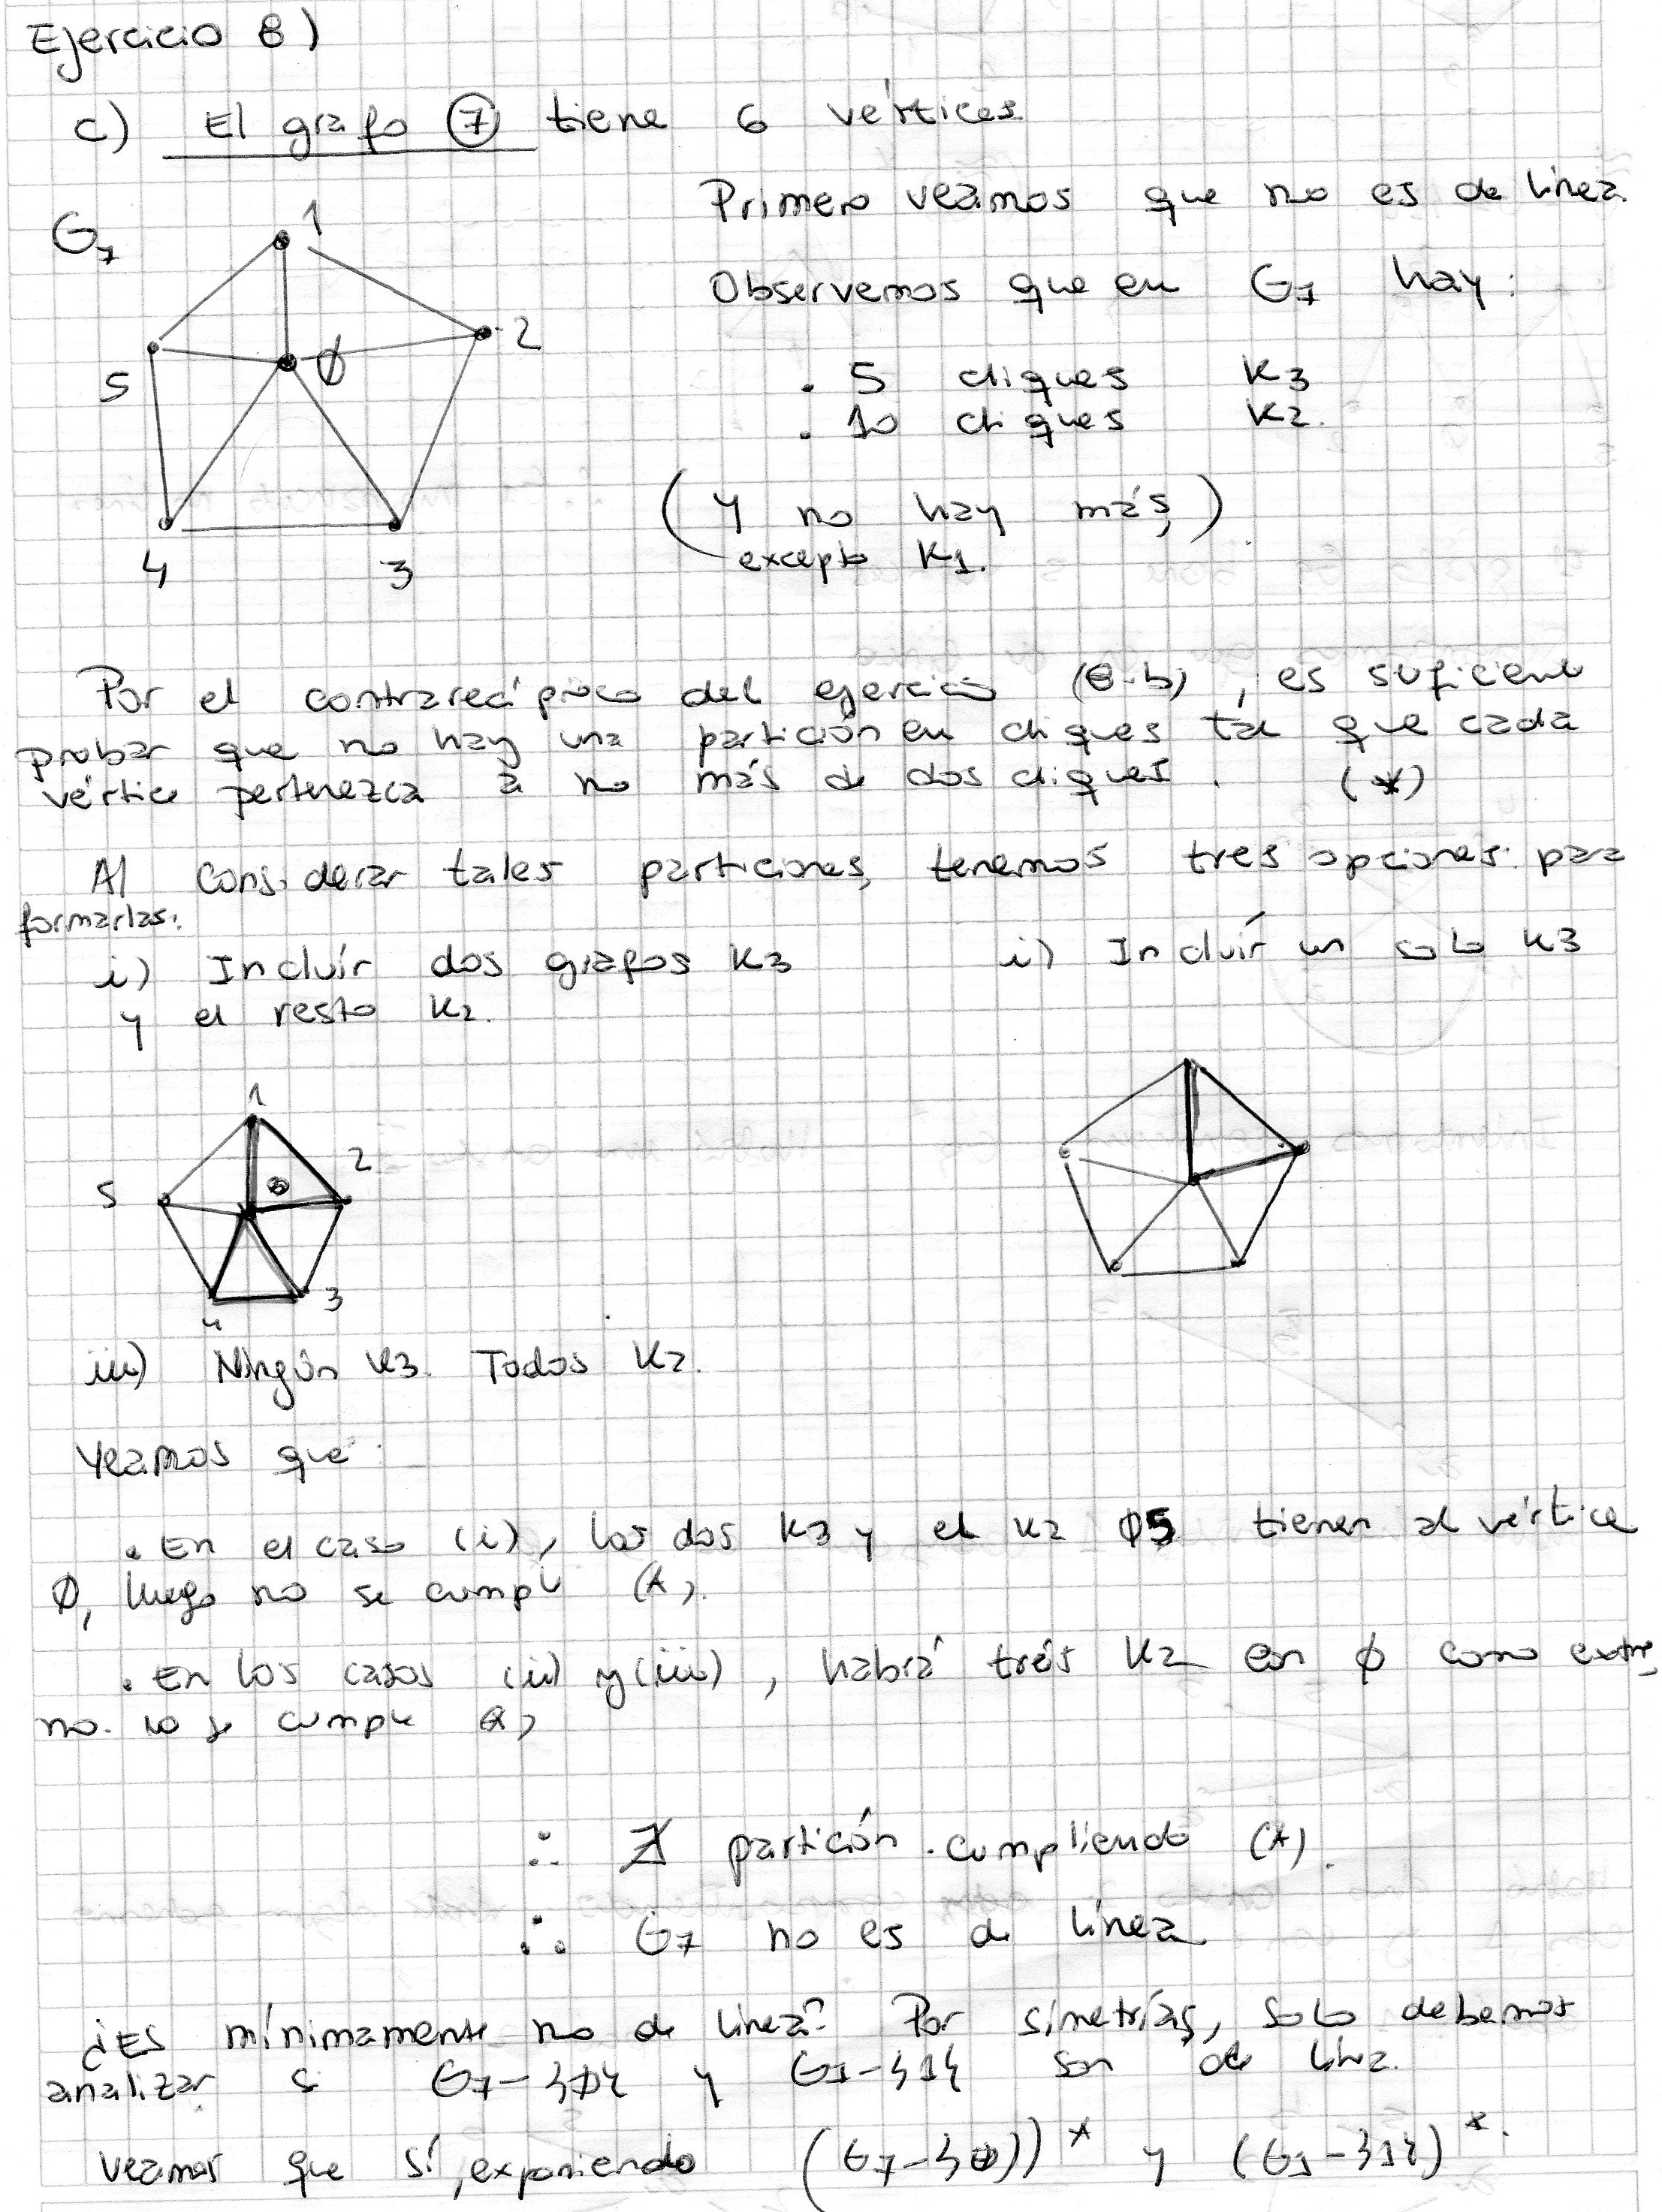 Ejercicio 8)
c) El grafo ⑦ tiene 6 vértices.
G₇
1
2
3
4
5
Ø
Primero veamos que no es de línea.
Observemos que en G₇ hay:
. 5 cliques K3
. 10 cliques K2.
(y no hay más)
excepto K1.
Por el contrarecíproco del ejercicio (8.b), es suficiente
probar que no hay una partición en cliques tal que cada
vértice pertenezca a no más de dos cliques. (*)
Al considerar tales particiones, tenemos tres opciones para
formarlas:
i) Incluír dos grafos K3
y el resto K2.
ii) Incluír un solo K3
1
2
5
0
3
4
iii) Ningún K3. Todos K2.
Veamos que:
. En el caso (i), los dos K3 y el K2 Ø5 tienen al vértice
Ø, luego no se cumple (*).
. En los casos (ii) y (iii), habrá trés K2 con Ø como extre
mo. no se cumple (*)
∴ ∄ partición cumpliendo (*).
∴ G₇ no es de línea
¿Es mínimamente no de línea? Por simetrías, solo debemos
analizar si G₇-{Ø} y G₇-{1} son de línea.
Veamos que sí, exponiendo (G₇-{Ø})* y (G₇-{1})*.